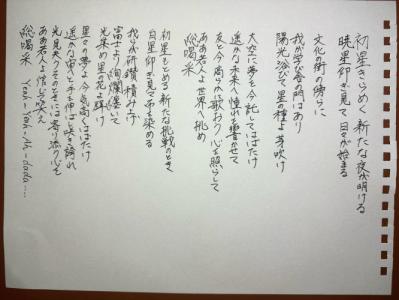 初星きらめく 新たな夜が明ける
暁星仰ぎ見て 日々が始まる
文化の街の傍らに
我が学び舎の門はあり
陽光浴びて 星の種よ 芽吹け
大空に夢を今 託してはばたけ
遥かな未来へ憧れを響かせて
友と今 高らかに歌おう 心を照らして
ああ若人よ 世界へ挑め
総喝采
初星もとめる 新たな挑戦のとき
白星仰ぎ見て 帝を染める
我らが研鑽 積み上げ
富士より 絢爛 輝いて
光集め 星の花よ 輝け
星々の夢よ 今 気高くはばたけ
遥かな宙へと手を伸ばし 咲き誇れ
光見失うそのときには寄り添う心を
ああ若人よ 凛と笑え
総喝采 Yeah-Yah-Ah-dada...